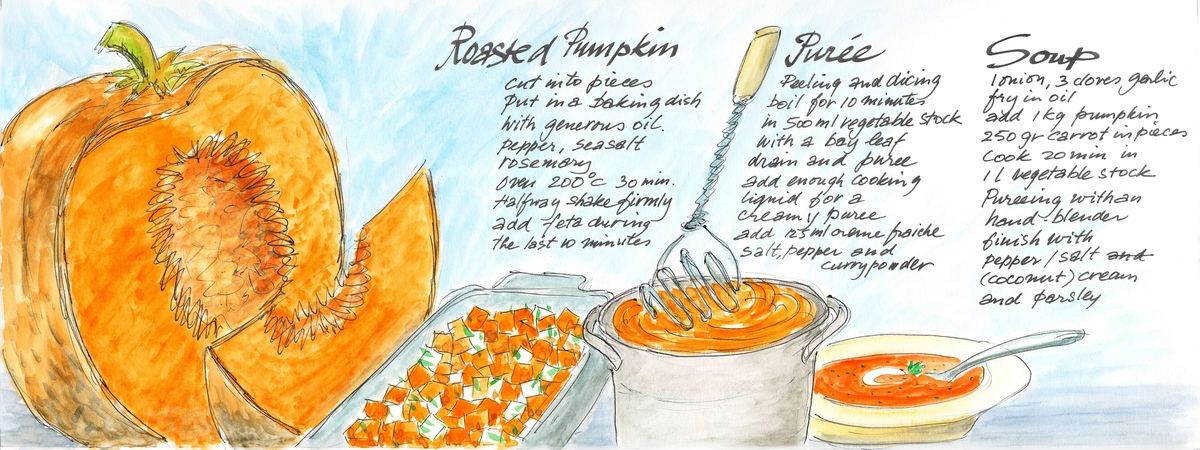 Roasted Pumpkin
cut into pieces
put in a baking dish
with generous oil.
pepper, seasalt
rosemary
Oven 200°c 30 min.
Halfway shake firmly
add feta during
the last 10 minutes
Purée
Peeling and dicing
boil for 10 minutes
in 500 ml vegetable stock
with a bay leaf
drain and puree
add enough cooking
liquid for a
creamy puree
add 125 ml creme fraiche
salt, pepper and
currypowder
Soup
1 onion, 3 cloves garlic
fry in oil
add 1 kg pumpkin
250 gr carrot in pieces
Cook 20 min in
1 L vegetable stock
Pureeing with an
hand-blender
finish with
pepper / salt and
(coconut) cream
and parsley